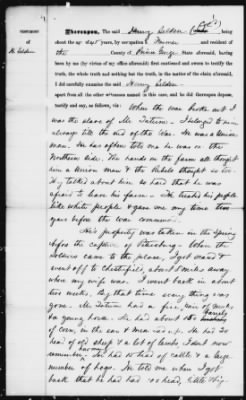 TESTIMONY
OF
H. Selden
Thereupon, The said Henry Selden (Col'd) being
about the age of years, by occupation a Farmer and resident of
the County of Prince George State aforesaid, having
been by me (by virtue of my office aforesaid) first cautioned and sworn to testify
the truth, the whole truth and nothing but the truth, in the matter of the claim aforesaid,
I did carefully examine the said Henry Selden
apart from all the other witnesses named in this case, and he did thereupon depose,
testify and say, as follows, viz:
When the war broke out I
was the slave of Mr Tatum. I belonged to him
always till the end of the war. He was a Union
man. He has often told me he was on the
Northern side. The hands on the farm all thought
him a Union man & the Rebels thought so too.
They talked about him so hard that he was
afraid to leave his place. He treated his people
like white people & gave one my time two
years before the war commenced.
His property was taken in the Spring
before the capture of Petersburg. When the
soldiers came to the place, I got scared &
went off to Chesterfield, about 8 miles away
where my wife was. I went back in about
two weeks. By that time every thing was
gone. Mr Tatum had a fine pair of
& a young horse. He had about 150 barrels
of corn, in the ear & meal. He had 30
head of sheep & a lot of lambs, I dont now
remember. He had 10 head of cattle & a large
number of hogs. He told me when I got
back that he had had 100 head, little & big.